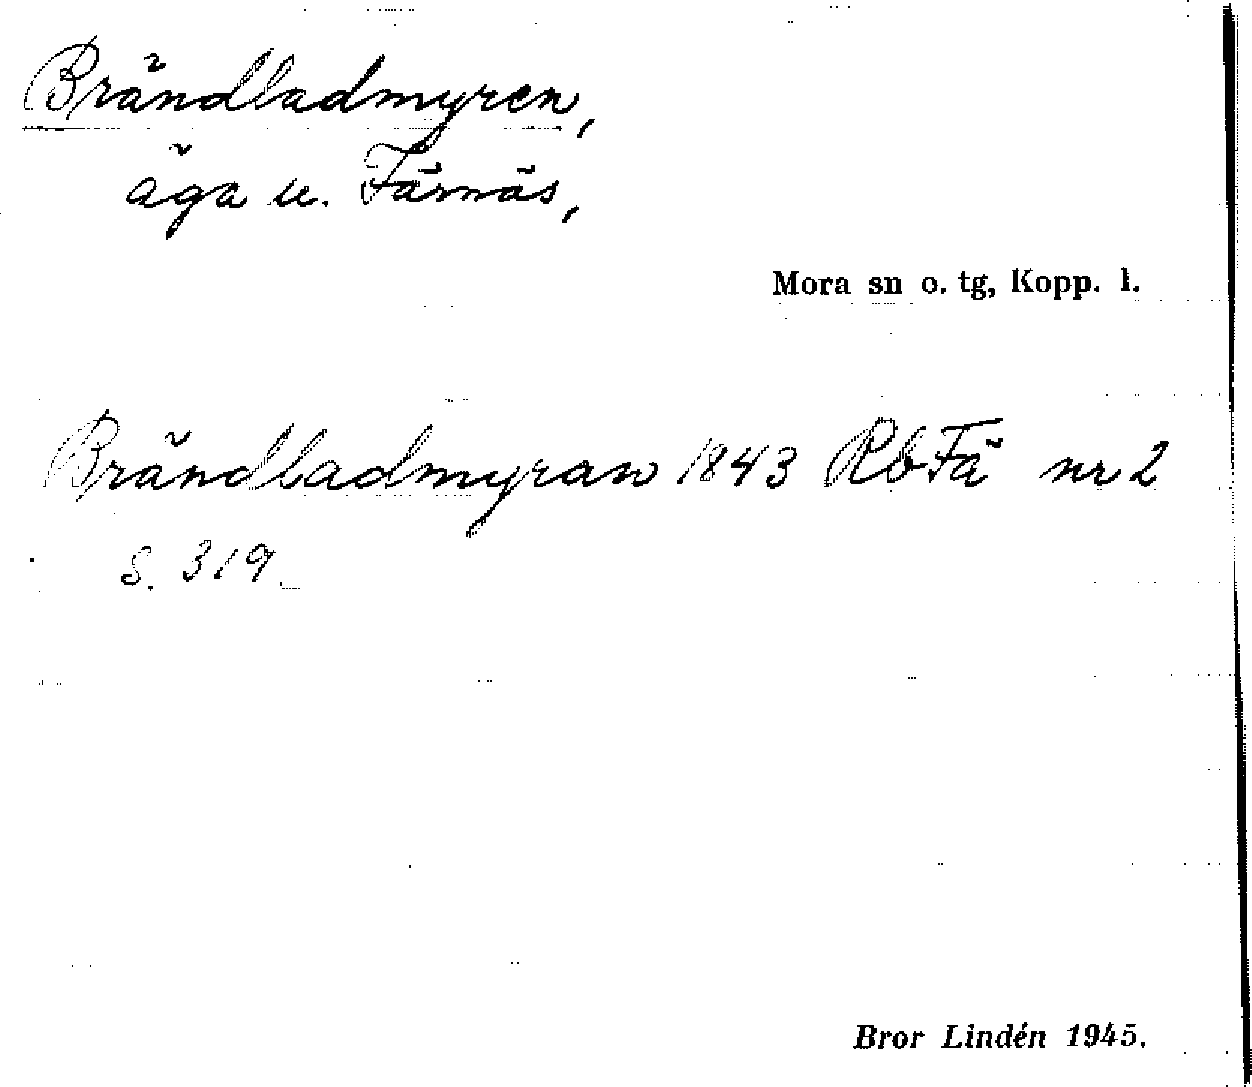 Brändladmyren,
äga u. Färnäs,
Mora sn o. tg, Kopp. l.
Brändladmyran 1843 Rb Fä nr 2
s. 319.
Bror Lindén 1945.